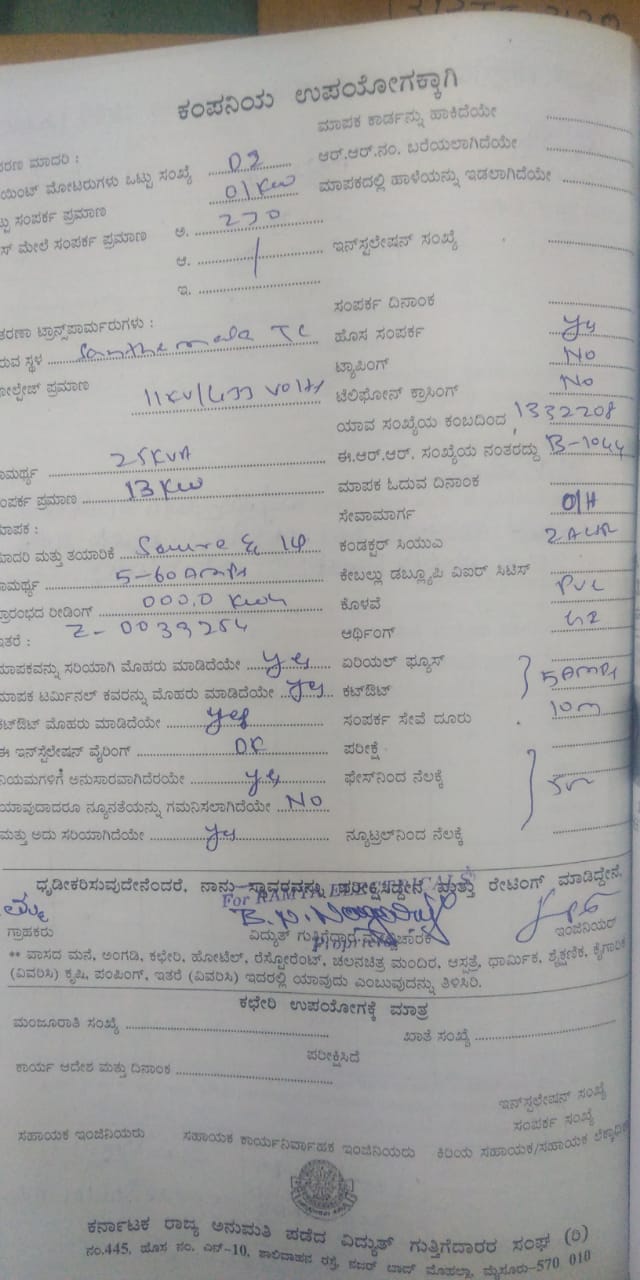 ಕಂಪನಿಯ ಉಪಯೋಗಕ್ಕಾಗಿ
ಮಾಪಕ ಕಾರ್ಡನ್ನು ಹಾಕಿದೆಯೇ
ಆರ್.ಆರ್.ನಂ. ಬರೆಯಲಾಗಿದೆಯೇ
ಮಾಪಕದಲ್ಲಿ ಹಾಳೆಯನ್ನು ಇಡಲಾಗಿದೆಯೇ
ಇನ್‌ಸ್ಟಲೇಷನ್ ಸಂಖ್ಯೆ
ಸಂಪರ್ಕ ದಿನಾಂಕ
ಹೊಸ ಸಂಪರ್ಕ yes
ಟ್ಯಾಪಿಂಗ್ No
ಟೆಲಿಫೋನ್ ಕ್ರಾಸಿಂಗ್ No
ಯಾವ ಸಂಖ್ಯೆಯ ಕಂಬದಿಂದ 1332208
ಈ.ಆರ್.ಆರ್. ಸಂಖ್ಯೆಯ ನಂತರದ್ದು B-1044
ಮಾಪಕ ಓದುವ ದಿನಾಂಕ
ಸೇವಾಮಾರ್ಗ O/H
ಕಂಡಕ್ಟರ್ ಸಿಯುಎ
ಕೇಬಲ್ಲು ಡಬ್ಲ್ಯೂಪಿ ವಿಐರ್ ಸಿಟಿಸ್
ಕೊಳವೆ PVC
ಆರ್ಥಿಂಗ್
ಏರಿಯಲ್ ಫ್ಯೂಸ್
ಕಟ್‌ಔಟ್ 5 AMPs
ಸಂಪರ್ಕ ಸೇವೆ ದೂರು 10 m
ಪರೀಕ್ಷೆ
ಫೇಸ್‌ನಿಂದ ನೆಲಕ್ಕೆ
ನ್ಯೂಟ್ರಲ್‌ನಿಂದ ನೆಲಕ್ಕೆ
ಮಾದರಿ :
ಮೋಟರುಗಳು ಒಟ್ಟು ಸಂಖ್ಯೆ 02
ಸಂಪರ್ಕ ಪ್ರಮಾಣ 01 KW
ಮೇಲೆ ಸಂಪರ್ಕ ಪ್ರಮಾಣ ಅ. 230
ಆ.
ಇ.
ಟ್ರಾನ್ಸ್‌ಪಾರ್ಮರುಗಳು :
ಸ್ಥಳ TC
ಪ್ರಮಾಣ 11KV/433 Volts
25KVA
ಪ್ರಮಾಣ 13 KW
ಮತ್ತು ತಯಾರಿಕೆ
5-60 AMPs
ರೀಡಿಂಗ್ 000.0 Kwh
Z-0039254
ಸರಿಯಾಗಿ ಮೊಹರು ಮಾಡಿದೆಯೇ yes
ಟರ್ಮಿನಲ್ ಕವರನ್ನು ಮೊಹರು ಮಾಡಿದೆಯೇ yes
ಕಟ್‌ಔಟ್ ಮೊಹರು ಮಾಡಿದೆಯೇ yes
ಈ ಇನ್‌ಸ್ಟೆಲೇಷನ್ ವೈರಿಂಗ್ OK
ನಿಯಮಗಳಿಗೆ ಅನುಸಾರವಾಗಿದೆರಯೇ yes
ಯಾವುದಾದರೂ ನ್ಯೂನತೆಯನ್ನು ಗಮನಿಸಲಾಗಿದೆಯೇ No
ಮತ್ತು ಅದು ಸರಿಯಾಗಿದೆಯೇ yes
ಧೃಡೀಕರಿಸುವುದೇನೆಂದರೆ, ನಾನು ಸ್ಥಾವರವನ್ನು ಪರೀಕ್ಷಿಸಿದ್ದೇನೆ ಮತ್ತು ರೇಟಿಂಗ್ ಮಾಡಿದ್ದೇನೆ.
For RAMYA ELECTRICALS
ಗ್ರಾಹಕರು ವಿದ್ಯುತ್ ಗುತ್ತಿಗೆದಾರ ಇಂಜಿನಿಯರ್
** ವಾಸದ ಮನೆ, ಅಂಗಡಿ, ಕಛೇರಿ, ಹೋಟೆಲ್, ರೆಸ್ಟೋರೆಂಟ್, ಚಲನಚಿತ್ರ ಮಂದಿರ, ಆಸ್ಪತ್ರೆ, ಧಾರ್ಮಿಕ, ಶೈಕ್ಷಣಿಕ, ಕೈಗಾರಿಕ
(ವಿವರಿಸಿ) ಕೃಷಿ, ಪಂಪಿಂಗ್, ಇತರೆ (ವಿವರಿಸಿ) ಇದರಲ್ಲಿ ಯಾವುದು ಎಂಬುವುದನ್ನು ತಿಳಿಸಿರಿ.
ಕಛೇರಿ ಉಪಯೋಗಕ್ಕೆ ಮಾತ್ರ
ಮಂಜೂರಾತಿ ಸಂಖ್ಯೆ ಖಾತೆ ಸಂಖ್ಯೆ
ಪರೀಕ್ಷಿಸಿದೆ
ಕಾರ್ಯ ಆದೇಶ ಮತ್ತು ದಿನಾಂಕ
ಇನ್‌ಸ್ಟಲೇಷನ್ ಸಂಖ್ಯೆ
ಸಂಪರ್ಕ ಸಂಖ್ಯೆ
ಸಹಾಯಕ ಇಂಜಿನಿಯರು ಸಹಾಯಕ ಕಾರ್ಯನಿರ್ವಾಹಕ ಇಂಜಿನಿಯರು ಕಿರಿಯ ಸಹಾಯಕ/ಸಹಾಯಕ
ಕರ್ನಾಟಕ ರಾಜ್ಯ ಅನುಮತಿ ಪಡೆದ ವಿದ್ಯುತ್ ಗುತ್ತಿಗೆದಾರರ ಸಂಘ (ರಿ)
ನಂ.445, ಹೊಸ ನಂ. ಎನ್-10, ಶಾಲಿವಾಹನ ರಸ್ತೆ, ನಜರ್ ಬಾದ್ ಮೊಹಲ್ಲಾ, ಮೈಸೂರು-570 010